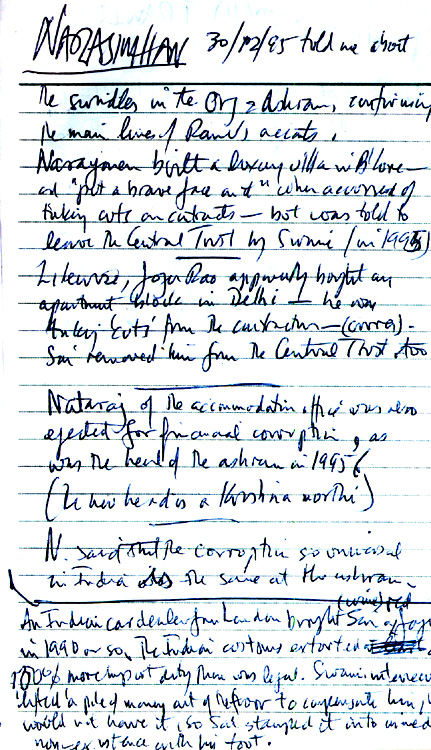 NARASIMHAN 30/12/95 told me about
The swindles in the Org & Ashram, confirming
the main lines of Rani's accounts.
Narayanan built a luxury villa in B'lore –
and "put a brave face on it" when accused of
taking cuts on contracts – but was told to
leave the Central Trust by Swami (in 1995)
Likewise, Joga Rao apparently bought an
apartment block in Delhi – he was
taking 'cuts' from the contractors –
Sai removed him from the Central Trust too
Nataraj of the accommodation office was also
ejected for financial corruption, as
was the head of the ashram in 1995
(the new head is a Krishna
N. said that the corruption so universal
in India the same at the ashram.
An Indian car dealer from London brought Sai a
in 1990 or so. The Indian customs extorted
100% more import duty than was legal. Swami
lifted a pile of money out of the floor to compensate him,
would not have it, so Sai stamped it into
non-existence with his foot.